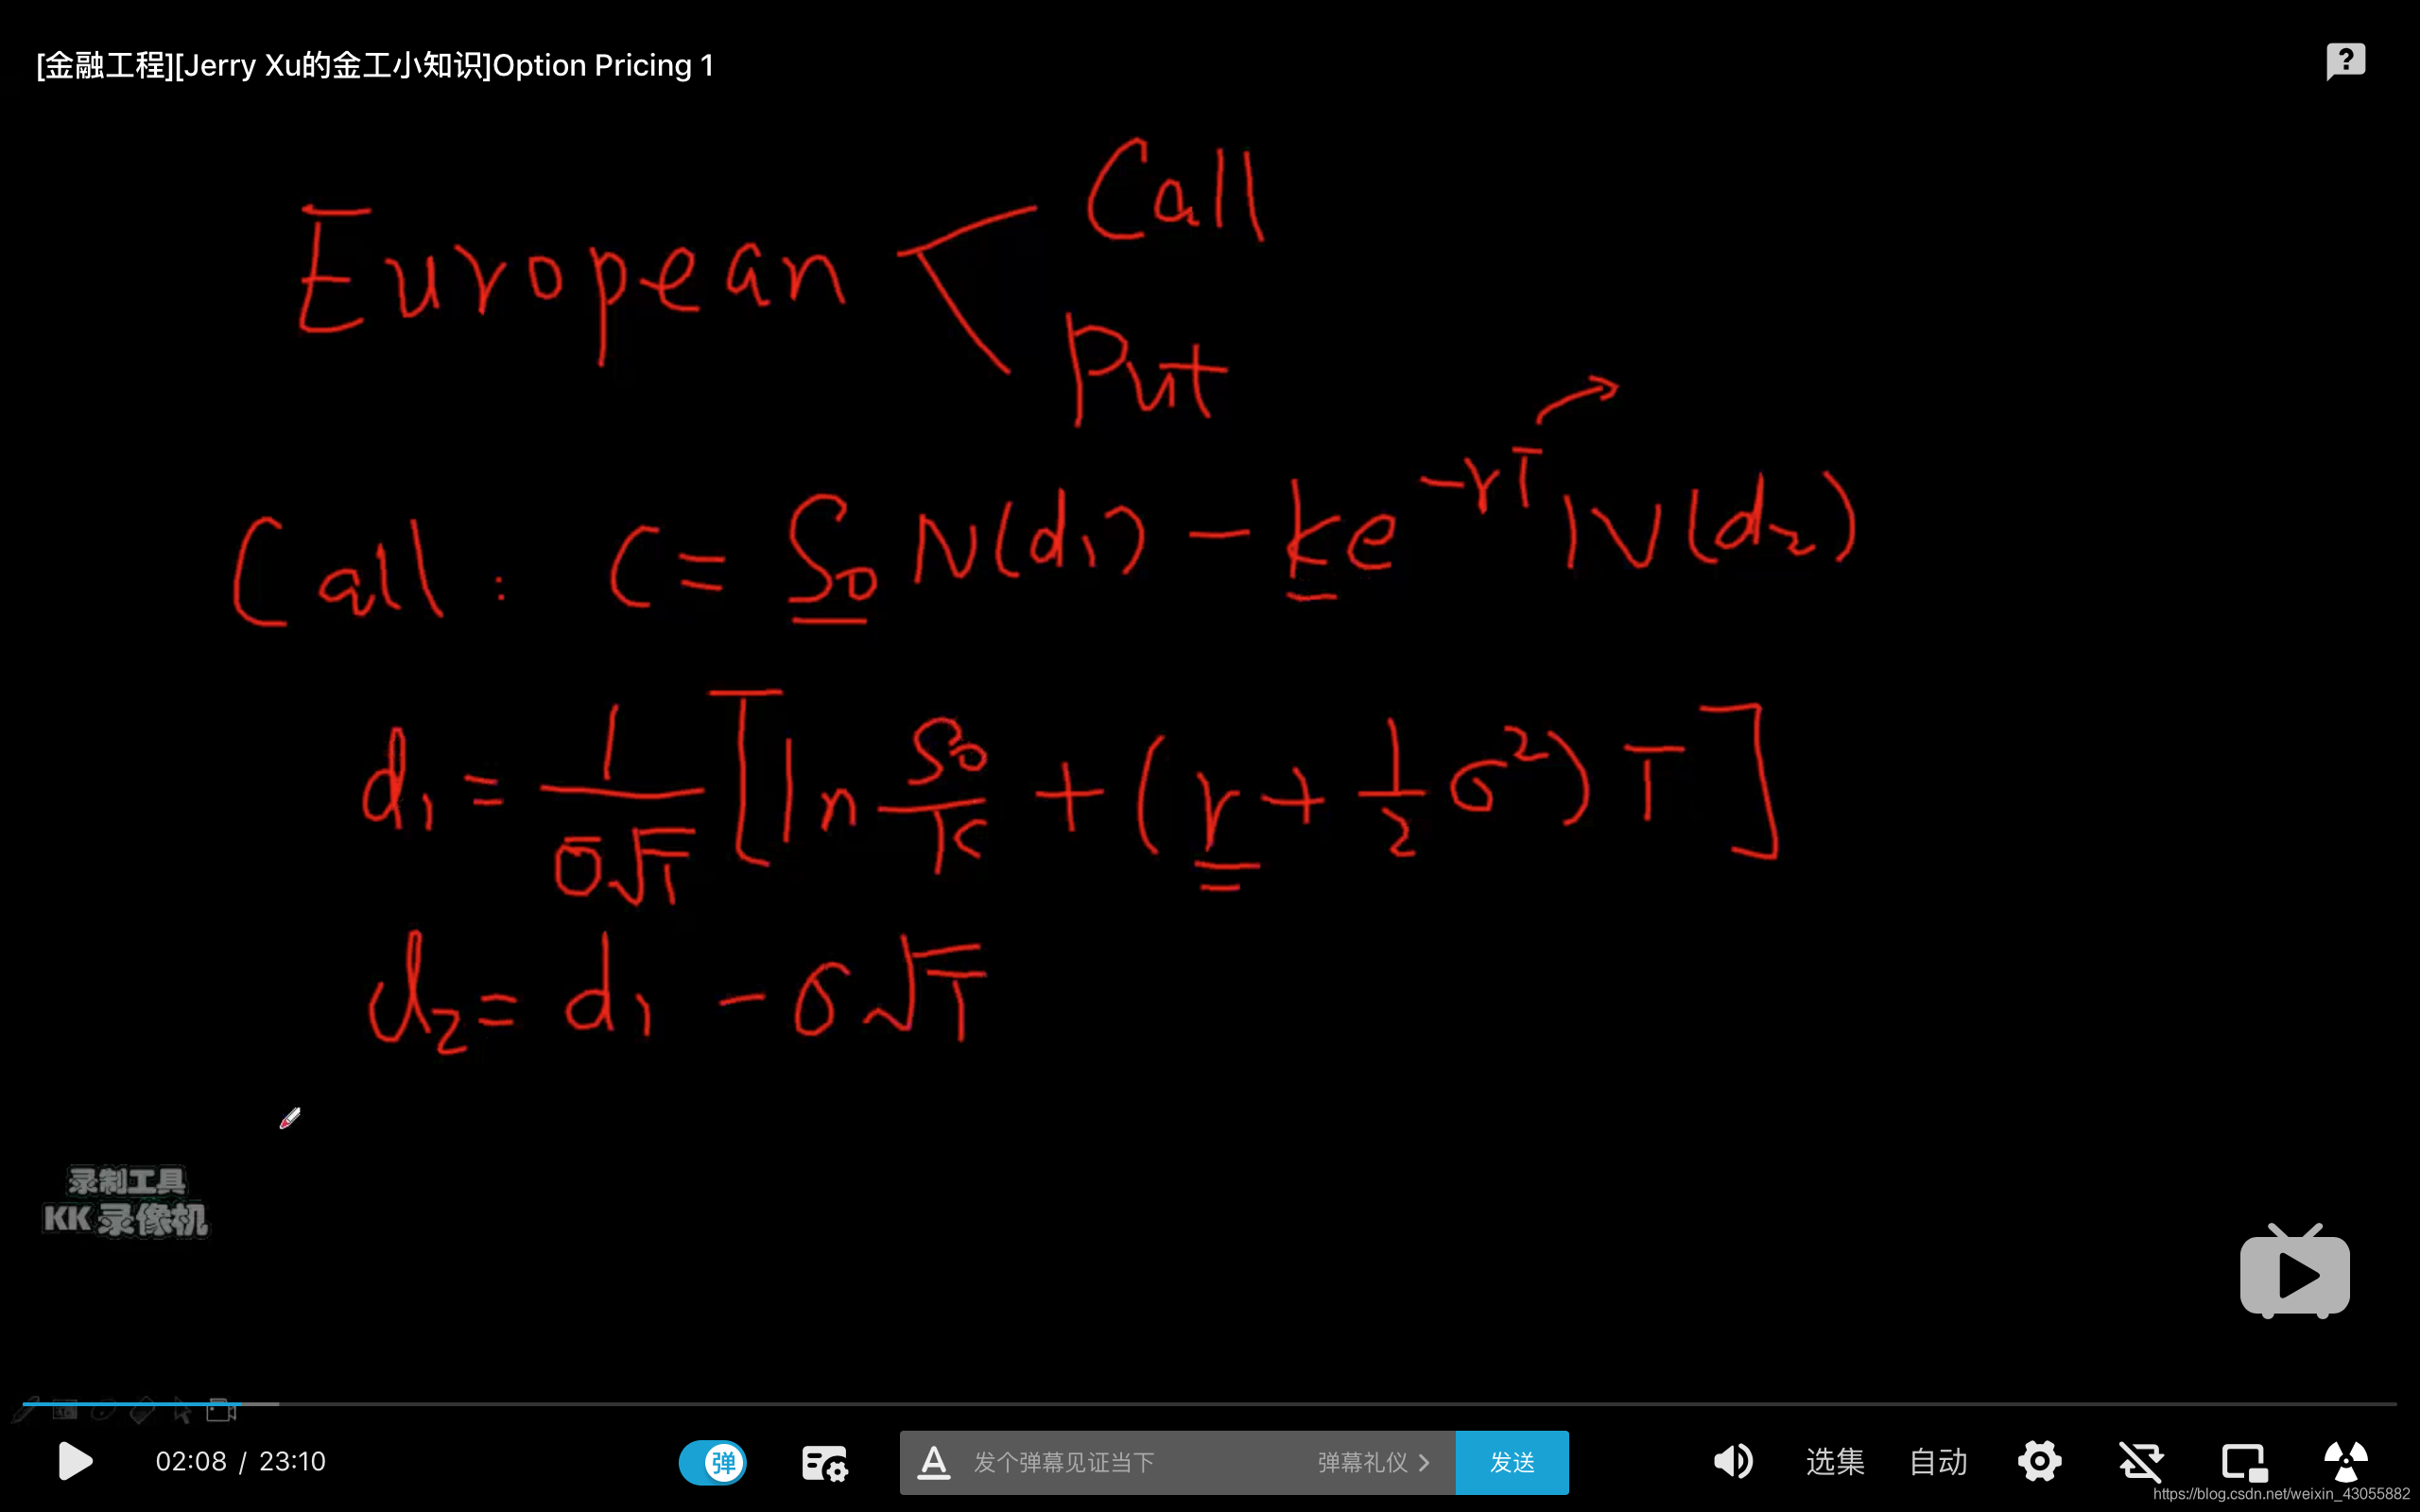 [金融工程][Jerry Xu的金工小知识]Option Pricing 1
European
Call
Put
Call : C = S₀ N(d₁) - ke^(-rT) N(d₂)
d₁ = 1/(σ√T) [ln S₀/K + (r + 1/2 σ²) T]
d₂ = d₁ - σ√T
录制工具
KK 录像机
02:08 / 23:10
弹
A 发个弹幕见证当下 弹幕礼仪 > 发送
选集 自动
https://blog.csdn.net/weixin_43055882